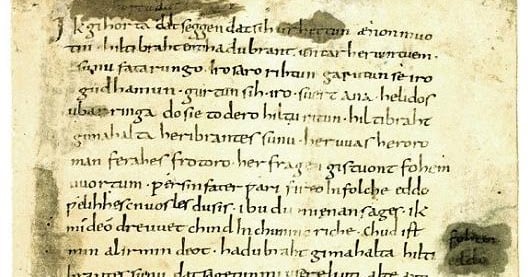 Ik gihorta dat seggen dat sih urhettun ænon muo
tin · hiltibraht enti hadubrant · untar heriun tuem ·
sunu fatarungo · iro saro rihtun garutun se iro
gudhamun · gurtun sih · iro · suert ana · helidos
ubar ringa do sie to dero hiltu ritun · hiltibraht
gimahalta heribrantes sunu · her uuas heroro
man ferahes frotoro · her fragen gistuont fohem
uuortum · ƿer sin fater ƿari fireo In folche eddo
ƿelihhes cnuosles du sis · ibu du mi ęnan sages · ik
mi deo dre uuet chind In chuninc riche · chud ist
min al irmin deot · hadubraht gimahalta hilti
brantes sunu dat sagetun mi usere liuti alte